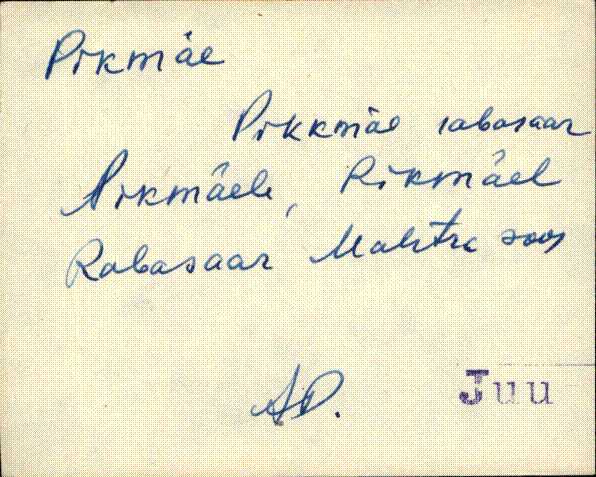 Pikmäe
Pikkmäe rabasaar
Pikmäele, Pikmäel
Rabasaar Mahtra soos
AP.
Juu